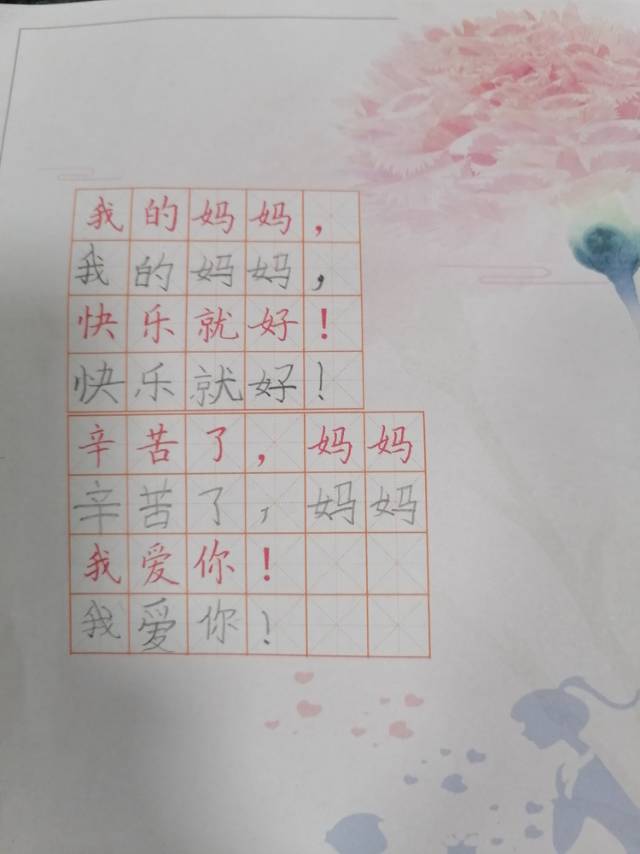 我的妈妈，
我的妈妈，
快乐就好！
快乐就好！
辛苦了，妈妈
辛苦了，妈妈
我爱你！
我爱你！